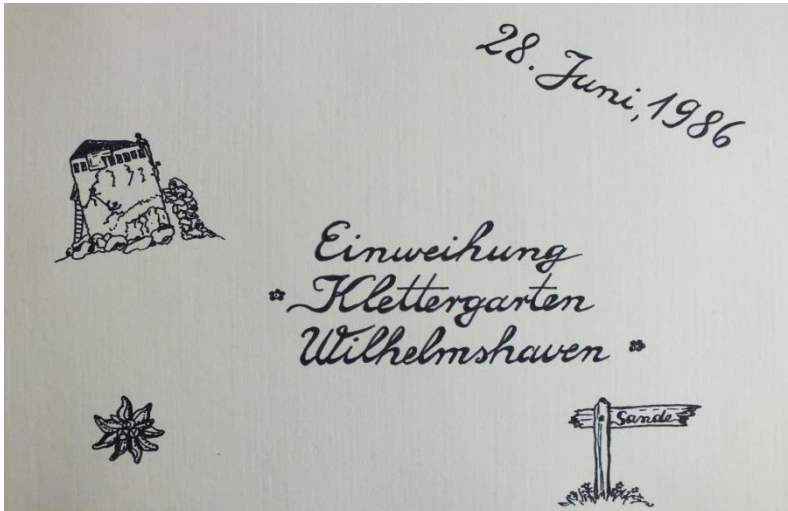 28. Juni, 1986
Einweihung
Klettergarten
Wilhelmshaven
Sande